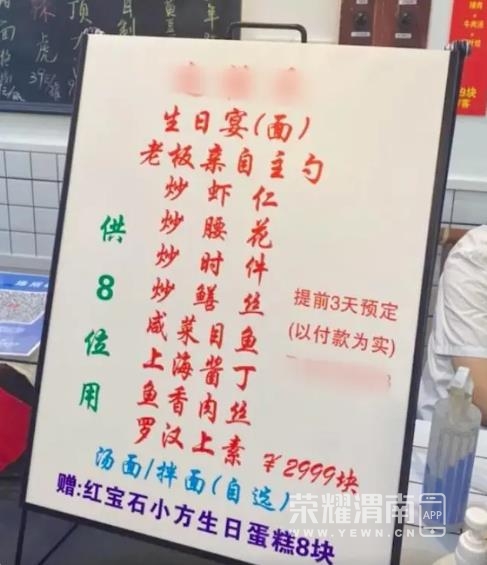 生日宴(面)
老板亲自主勺
炒虾仁
炒腰花
炒时件
炒鳝丝
咸菜目鱼
上海酱丁
鱼香肉丝
罗汉上素
¥2999块
供8位用
提前3天预定
(以付款为实)
汤面/拌面(自选)
赠:红宝石小方生日蛋糕8块
荣耀渭南
APP
WWW.YEWN.CN